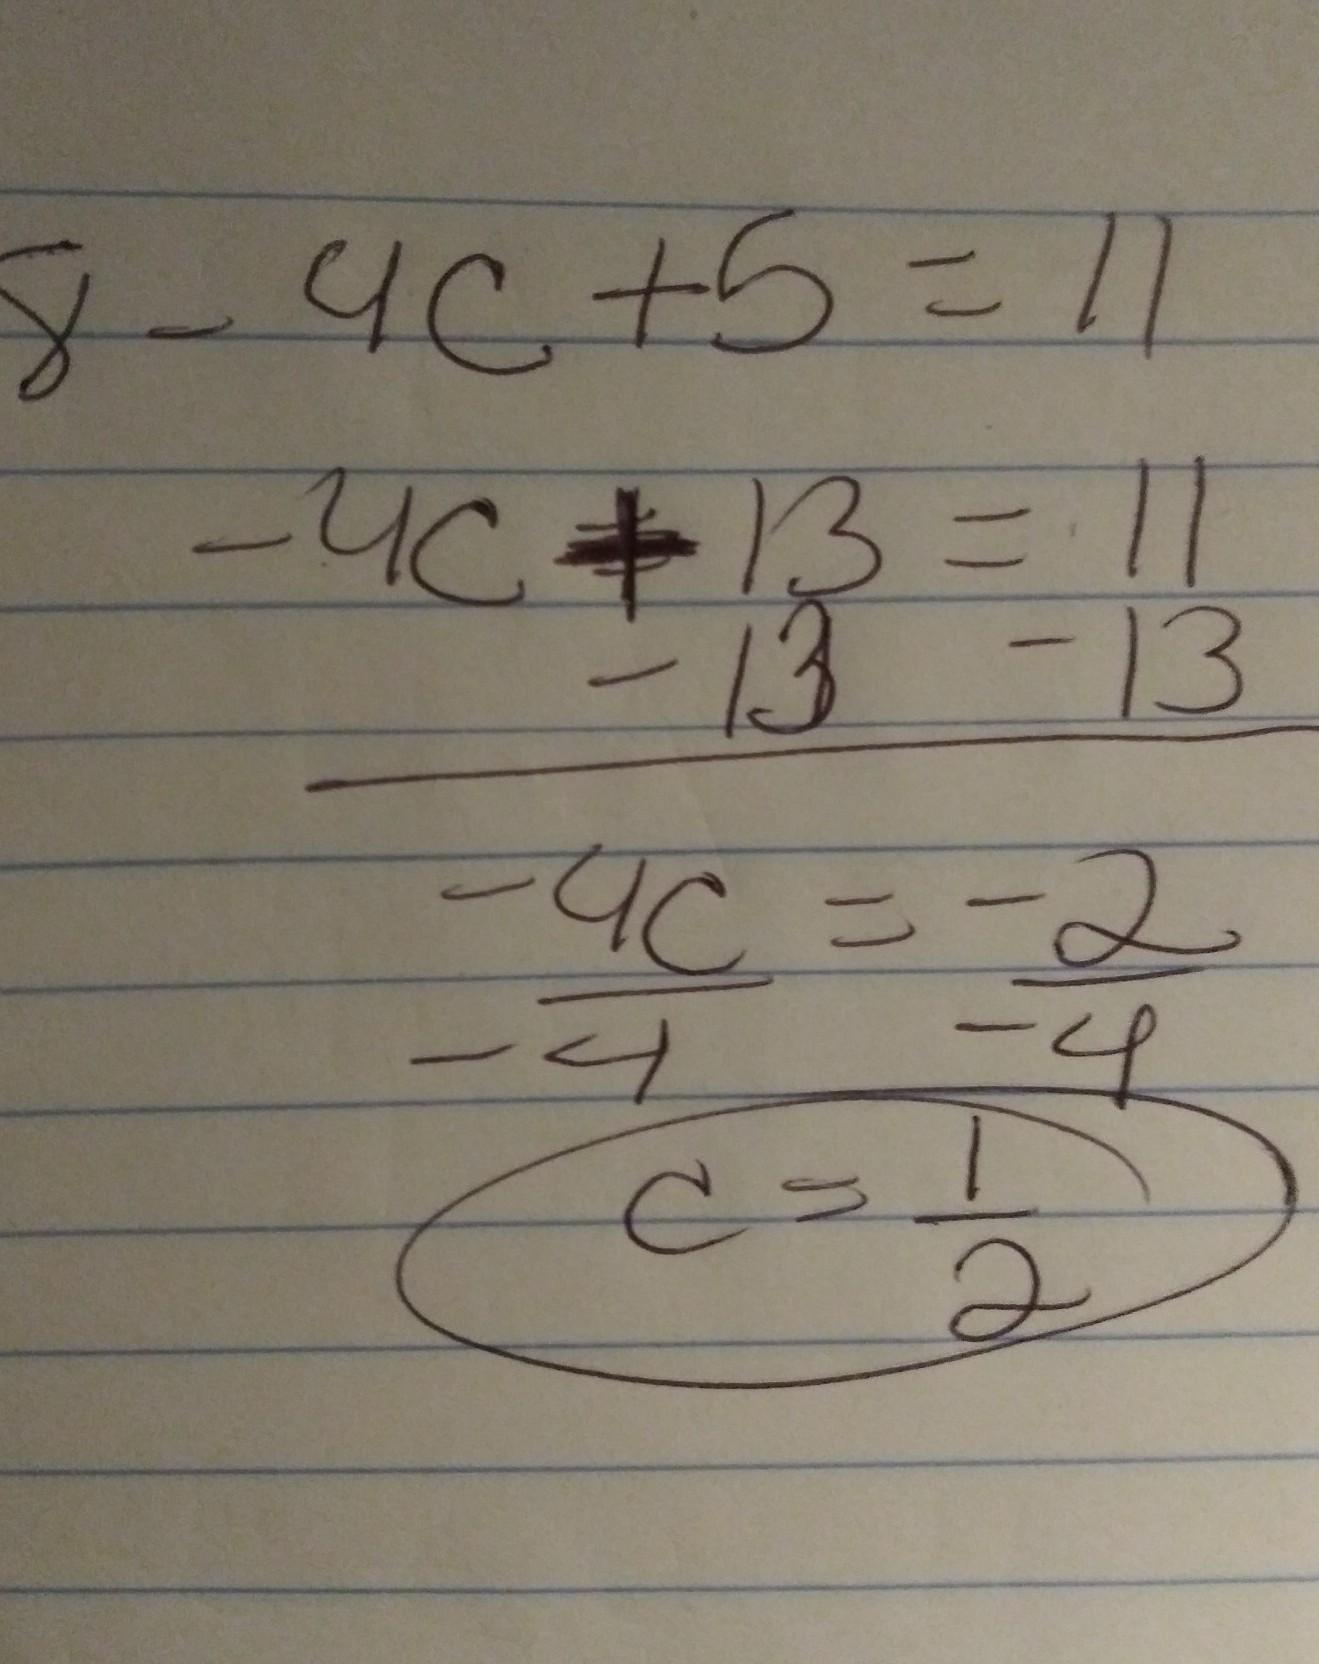 8 - 4c + 5 = 11
-4c + 13 = 11
- 13 - 13
-4c = -2
-4 -4
c = 1/2